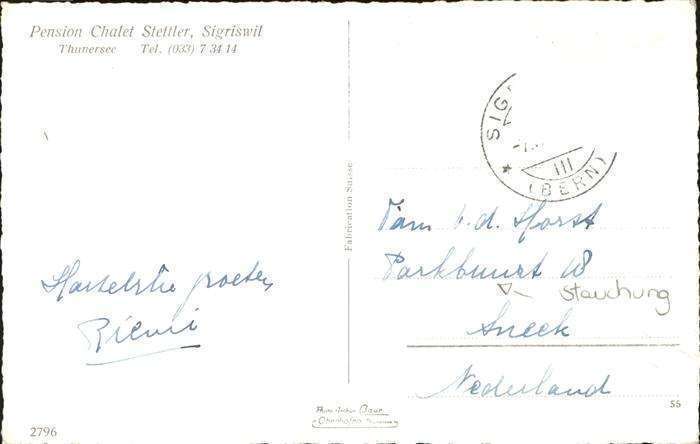 Pension Chalet Stettler, Sigriswil
Thunersee Tel. (033) 7 34 14
Hartelijke groeten
Rienri
Fabrication Suisse
SIG
III
(BERN)
Fam v.d. Horst
Parkbuurt 18
Stauchung
Sneek
Nederland
Oberhofen
55
2796